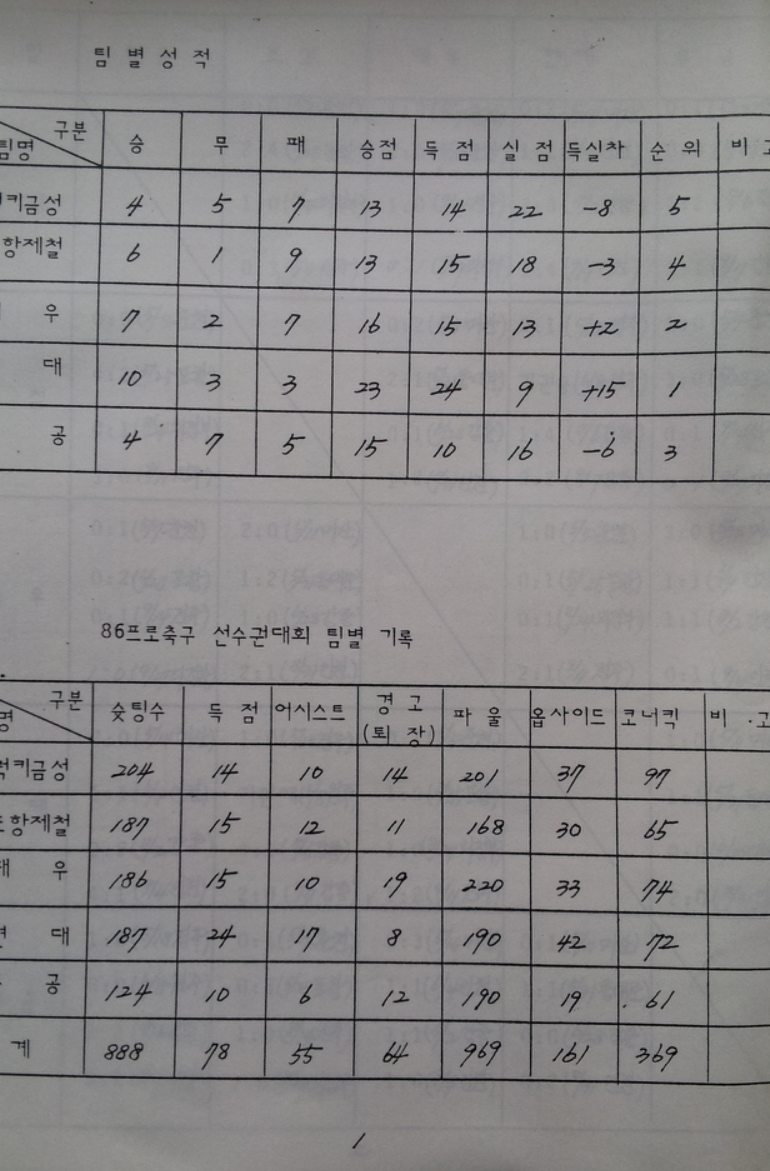 팀 별 성 적
구분
팀명 승 무 패 승점 득 점 실 점 득실차 순 위 비 고
키금성 4 5 7 13 14 22 -8 5
항제철 6 1 9 13 15 18 -3 4
우 7 2 7 16 15 13 +2 2
대 10 3 3 23 24 9 +15 1
공 4 7 5 15 10 16 -6 3
86프로축구 선수권대회 팀별 기록
구분
명 슛팅수 득 점 어시스트 경 고 파 울 옵사이드 코너킥 비 고
(퇴 장)
럭키금성 204 14 10 14 201 37 97
포항제철 187 15 12 11 168 30 65
대 우 186 15 10 19 220 33 74
현 대 187 24 17 8 190 42 72
공 124 10 6 12 190 19 61
계 888 78 55 64 969 161 369
1